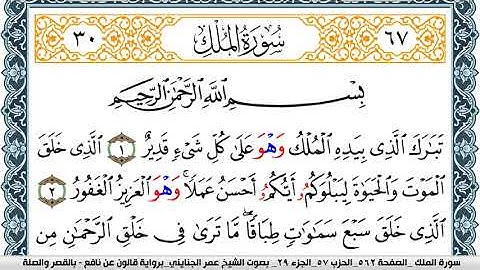 ٦٧ سُورَةُ الْمُلْكِ ٣٠
بِسْمِ اللَّهِ الرَّحْمَٰنِ الرَّحِيمِ
تَبَارَكَ الَّذِي بِيَدِهِ الْمُلْكُ وَهْوَ عَلَىٰ كُلِّ شَيْءٍ قَدِيرٌ ١ الَّذِي خَلَقَ
الْمَوْتَ وَالْحَيَوٰةَ لِيَبْلُوَكُمُۥ أَيُّكُمُۥ أَحْسَنُ عَمَلًا وَهْوَ الْعَزِيزُ الْغَفُورُ ٢
الَّذِي خَلَقَ سَبْعَ سَمَٰوَٰتٍ طِبَاقًا مَّا تَرَىٰ فِي خَلْقِ الرَّحْمَٰنِ مِن
سورة الملك _الصفحة ٥٦٢_الحزب ٥٧_الجزء ٢٩_ بصوت الشيخ عمر الجنايني_برواية قالون عن نافع - بالقصر والصلة